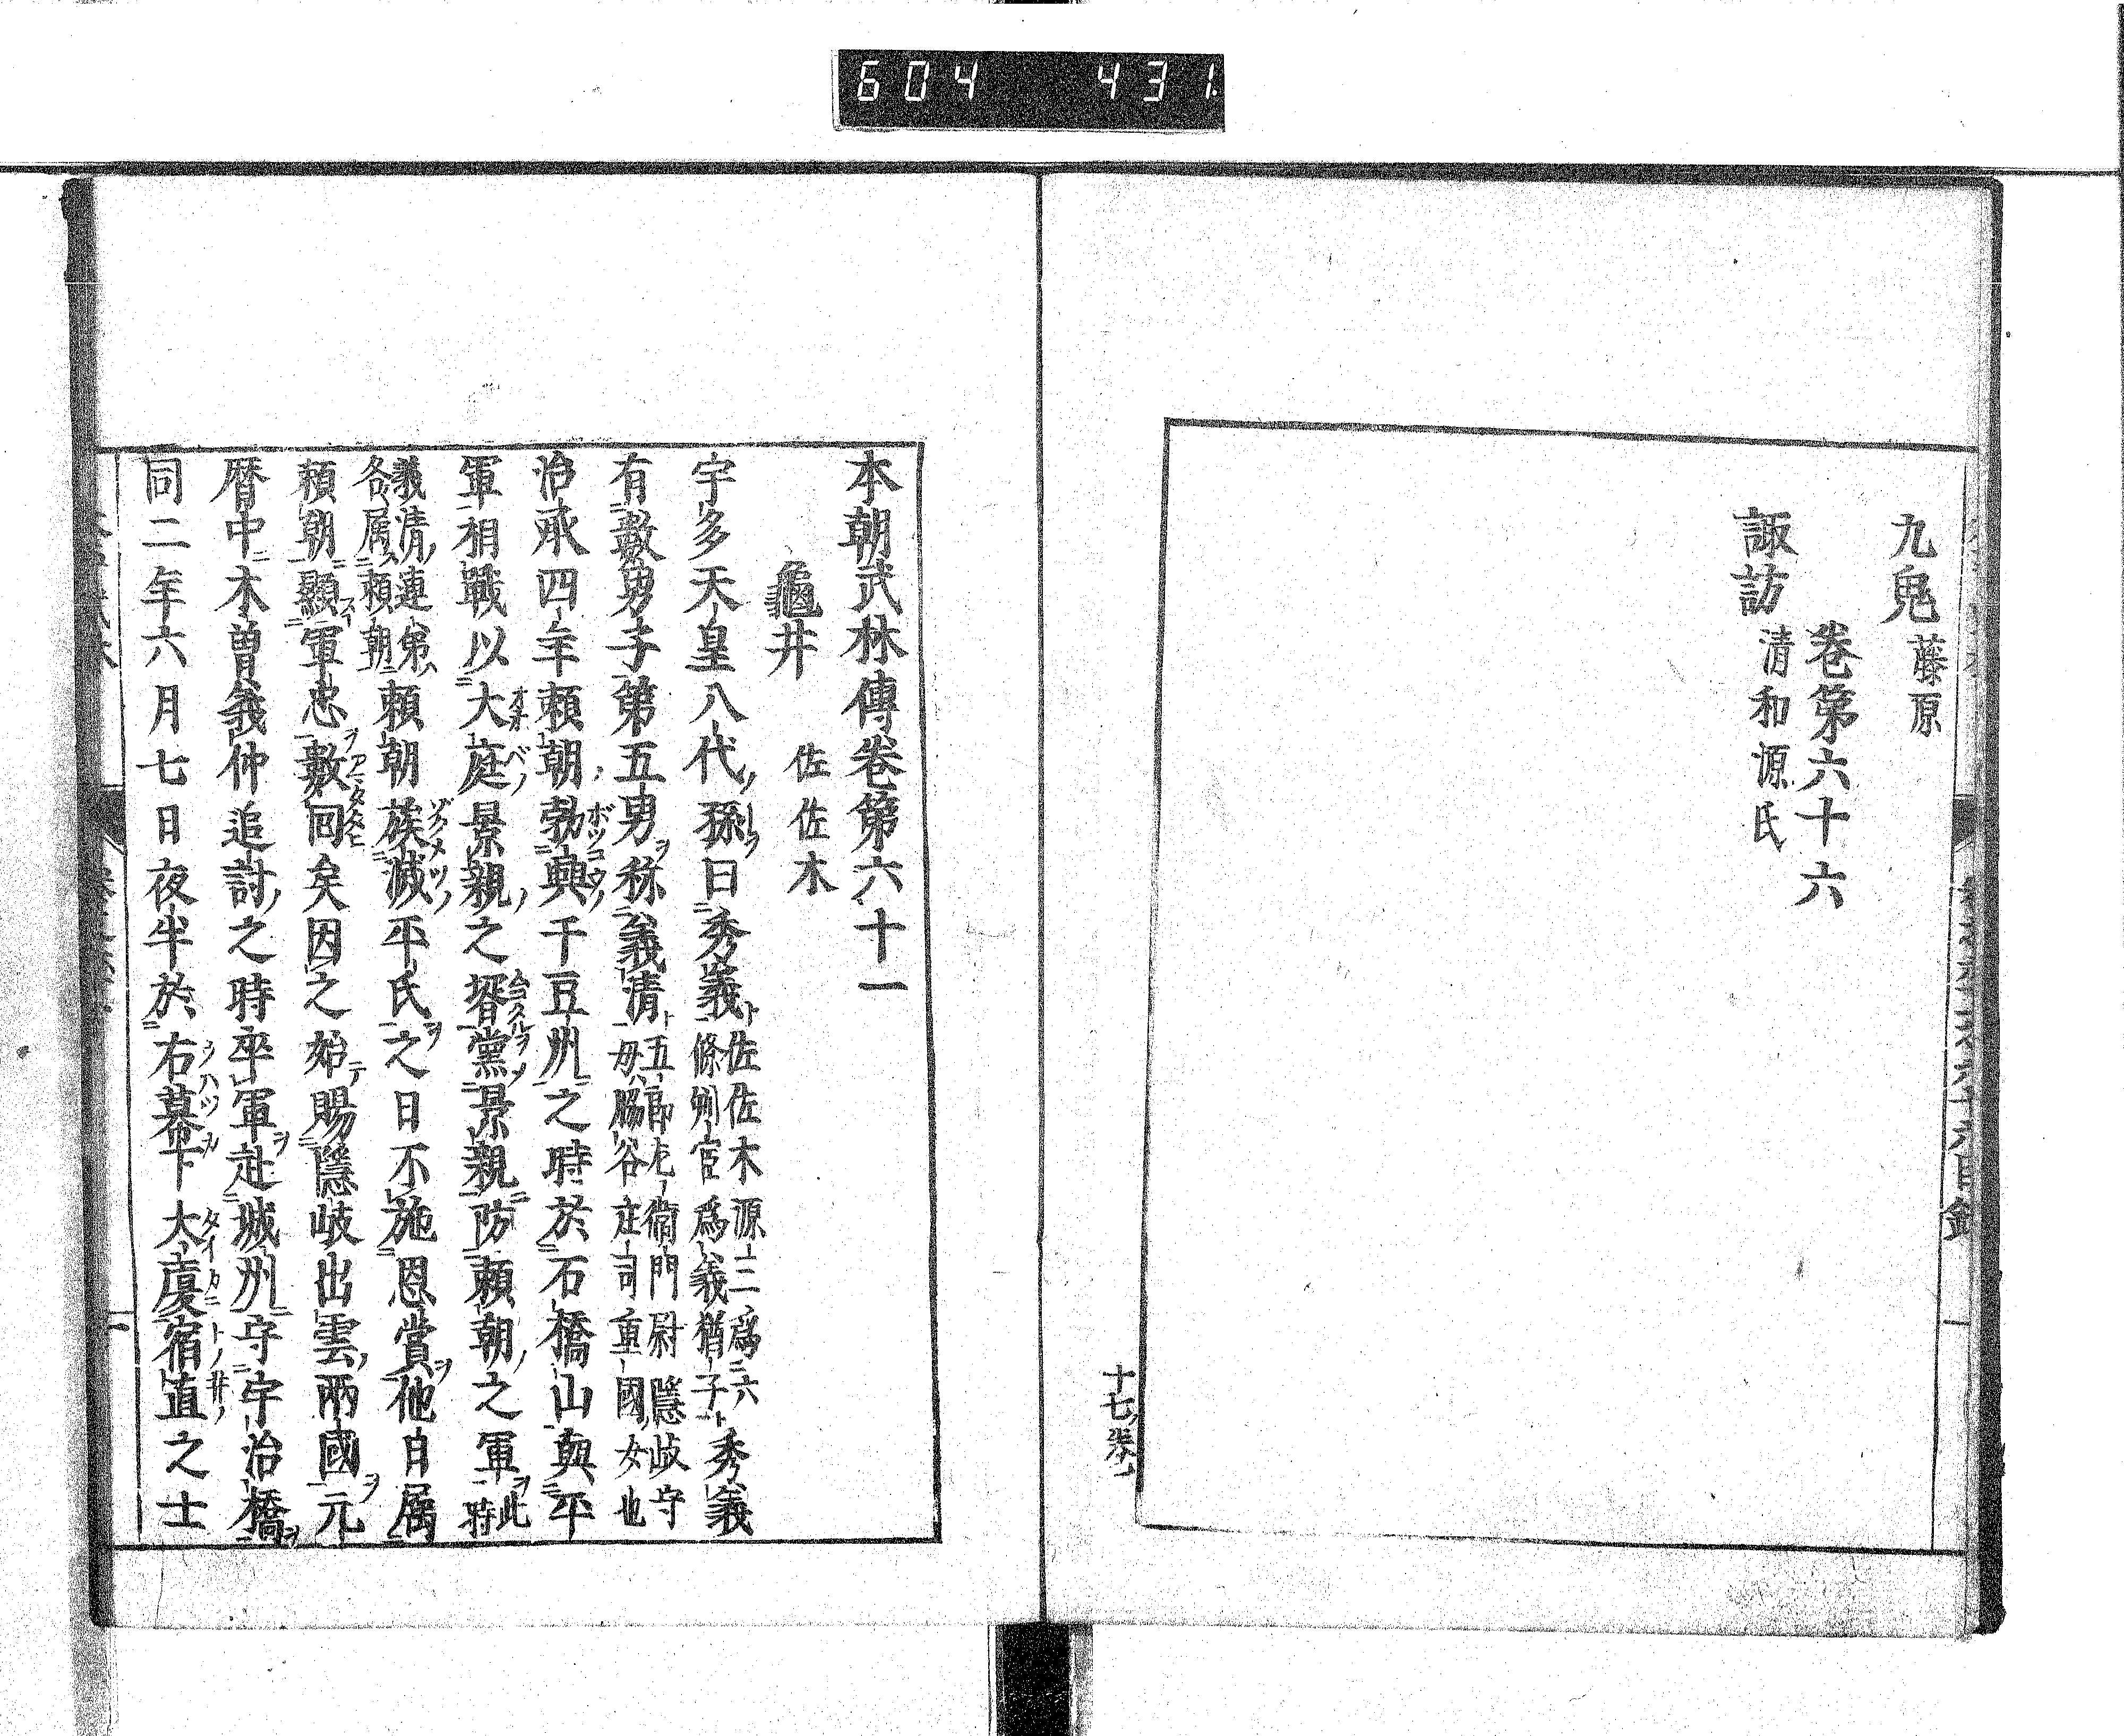 604 431
九鬼 藤原
卷第六十六
諏訪 清和源氏
十七卷
本朝武林傳卷第六十一
龜井 佐佐木
宇多天皇八代ノ孫ヲ曰秀義ト佐佐木源三爲六
條判官爲義猶子ト秀義
有數男子第五男ヲ稱義清ト五郎左衛門尉隱岐守
母ハ脇谷庄司重國女也
治承四年賴朝勃興于豆州之時於石橋山與平
軍相戰以大庭景親ノ之壻黨景親防賴朝ノ之軍ヲ此
時
義清連弟ハ
各屬賴朝賴朝族滅平氏ヲ之日不施恩賞ヲ他日屬
賴朝顯軍忠ヲ數回矣因之始テ賜隱岐出雲兩國ヲ元
曆中木曾義仲追討ノ之時卒軍ヲ赴城州守宇治橋ヲ
同二年六月七日夜半於右幕下大廈宿直之士
一